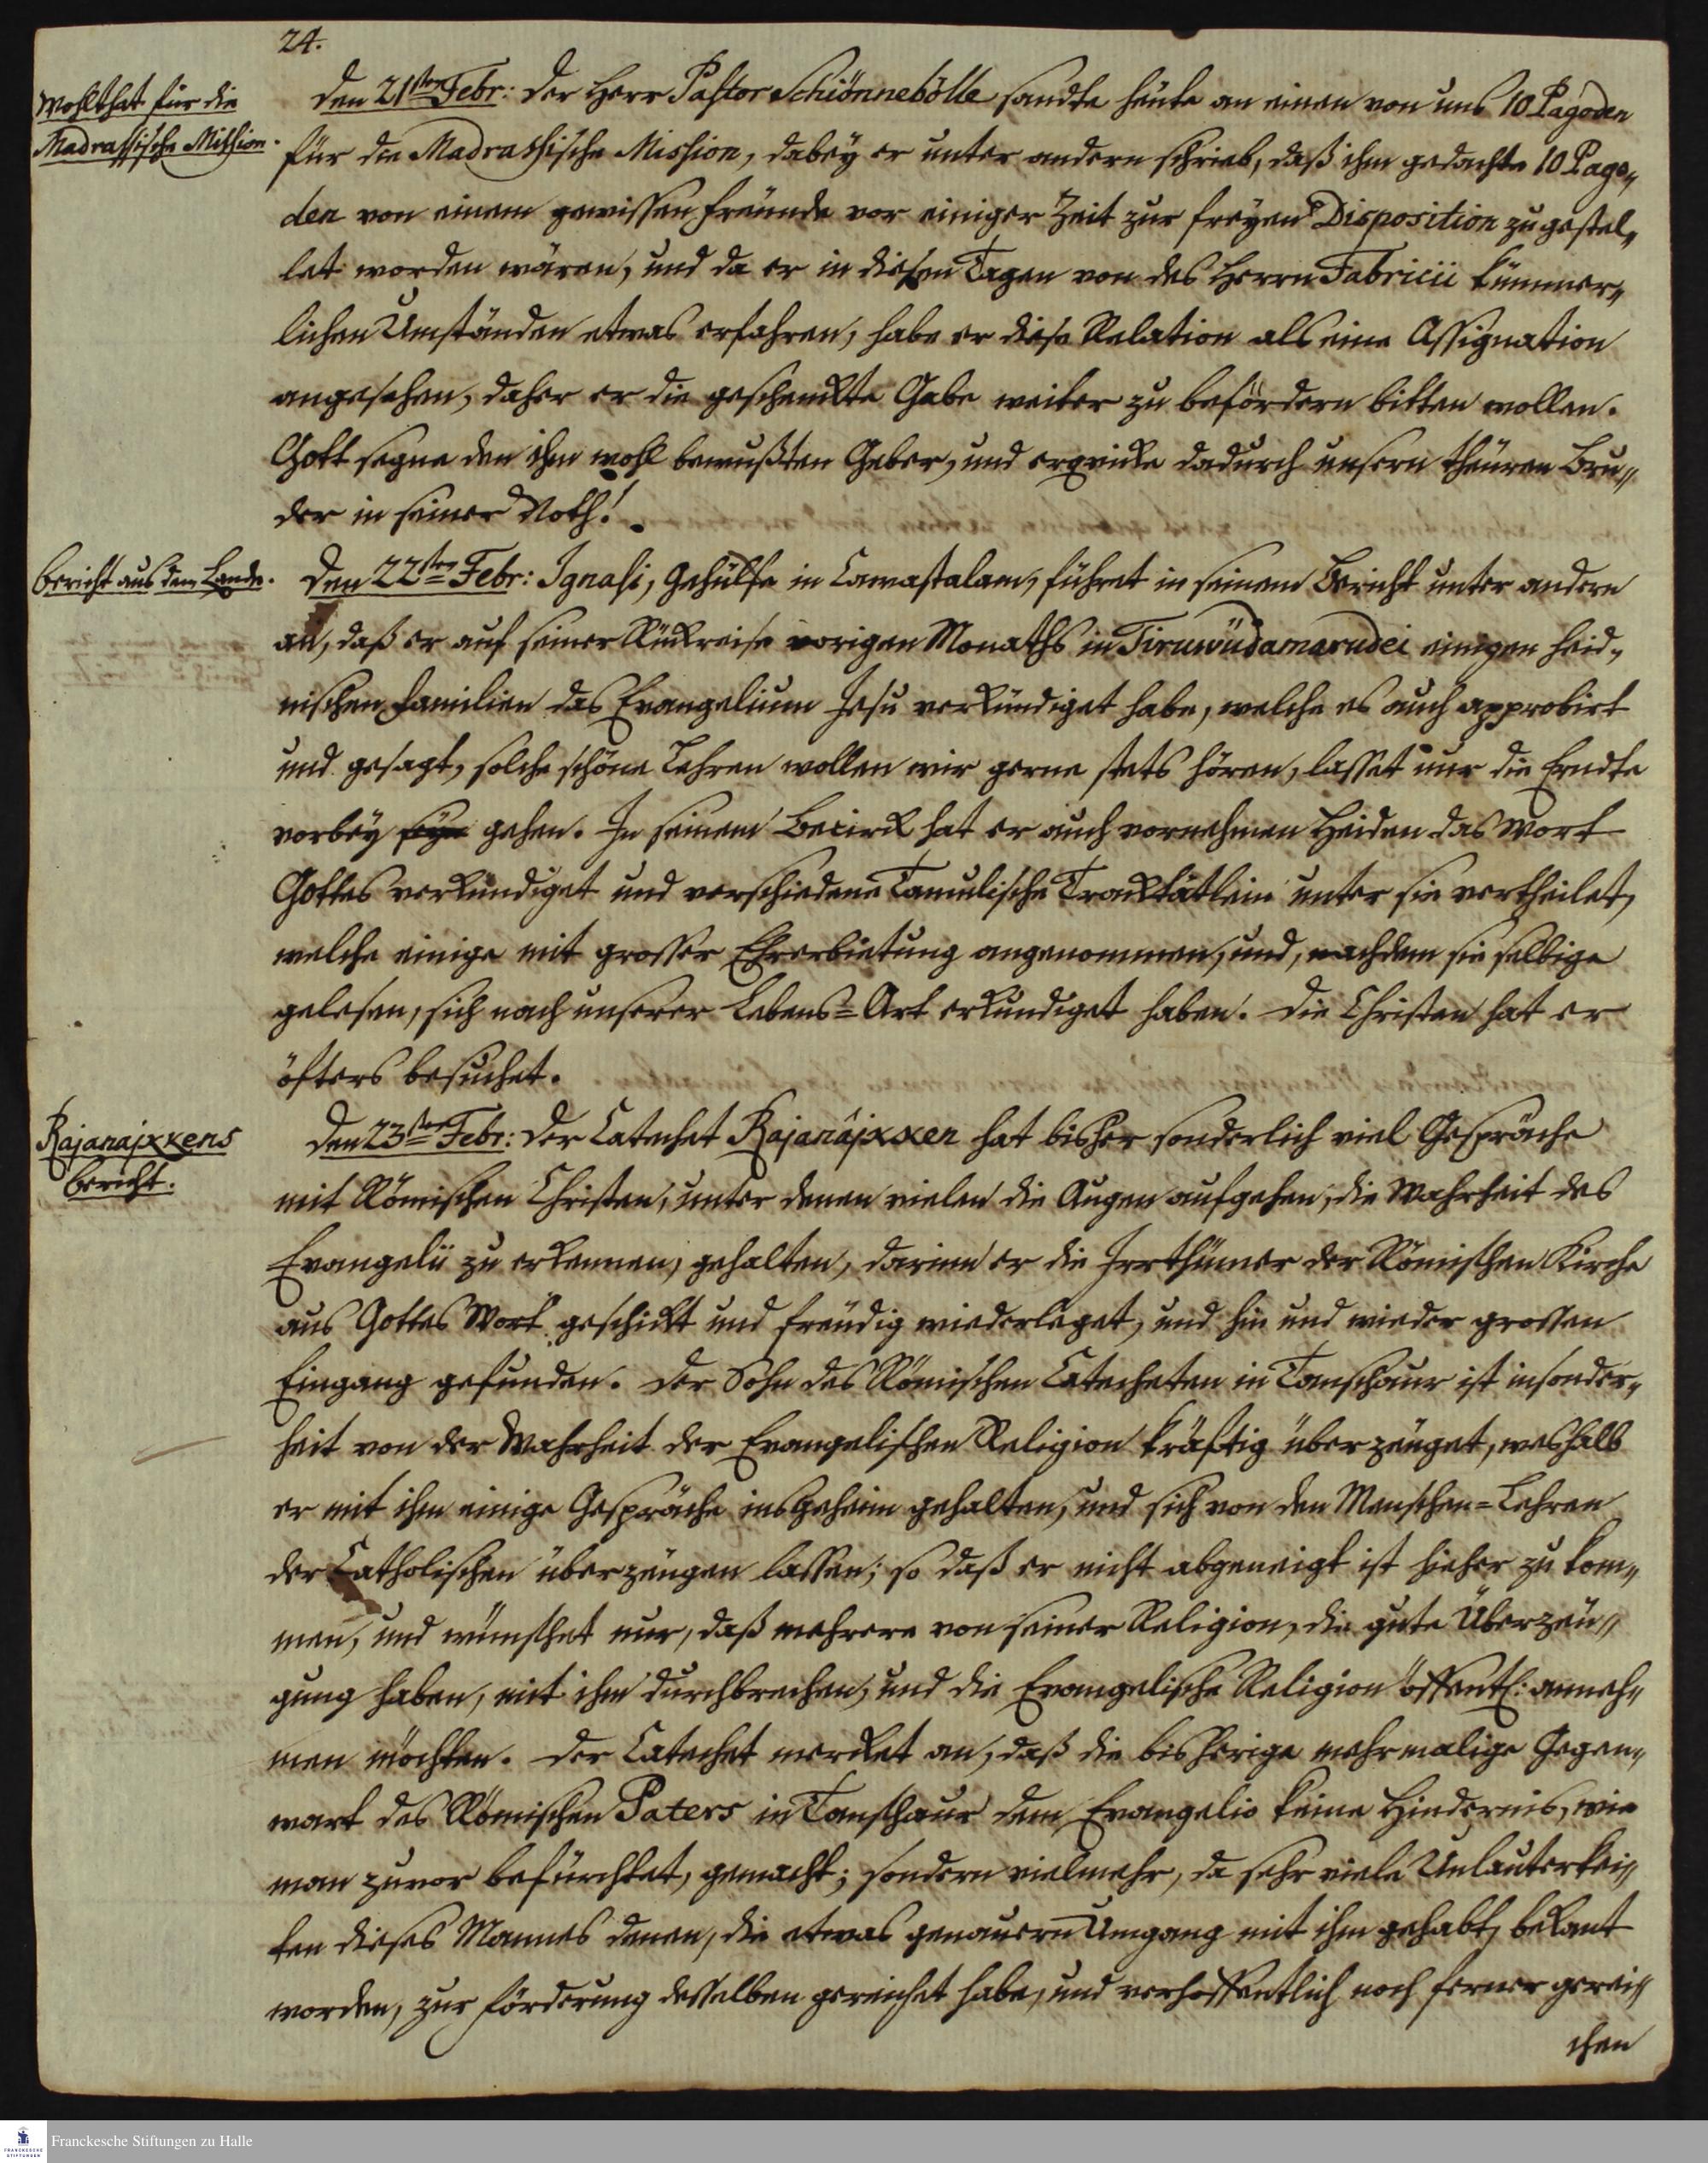 24.
Wohlthat für die
Madrassische Mission.
Den 21sten Febr: Der Herr Pastor Schiönnebölle sandte heute an einen von uns 10 Pagoden
für die Madrassische Mission, dabey er unter andern schrieb, daß ihm gedachte 10 Pago„
den von einem gewissen Freunde vor einiger Zeit zur freyen Disposition zugestel„
let worden wären, und da er in diesen Tagen von des Herrn Fabricii kümmer„
lichen Umständen etwas erfahren, habe er diese Relation als eine Assignation
angesehen, daher er die geschenkte Gabe weiter zu befördern bitten wollen.
Gott segne den ihm wohl bewußten Geber, und erqvicke dadurch unsern theuren Bru„
der in seiner Noth!
Bericht aus dem Lande.
Den 22sten Febr: Ignasi, Gehülfe in Cawastalam, führet in seinem Bericht unter andern
an, daß er auf seiner Rückreise vorigen Monaths in Tiruwüdamarudei einigen heid„
nischen Familien das Evangelium Jesu verkündiget habe, welche es auch approbirt
und gesagt, solche schöne Lehren wollen wir gerne stets hören, lasset nur die Erndte
vorbey gehen. In seinem Becirck hat er auch vornehmen Heiden das Wort
Gottes verkündiget und verschiedene Tamulische Tracktätlein unter sie vertheilet,
welche einige mit grosser Ehrerbietung angenommen, und, nachdem sie selbige
gelesen, sich nach unserer Lebens=Art erkundiget haben. Die Christen hat er
öfters besuchet.
Rajanajxkens
Bericht.
Den 23sten Febr: Der Catechet Rajanâjxxen hat bisher sonderlich viel Gespräche
mit Römischen Christen, unter denen vielen die Augen aufgehen, die Wahrheit des
Evangelii zu erkennen, gehalten, darinn er die Irrthümer der Römischen Kirche
aus Gottes Wort geschickt und freudig wiederleget, und hin und wieder grossen
Eingang gefunden. Der Sohn des Römischen Catecheten in Tanschaur ist insonder„
heit von der Wahrheit der Evangelischen Religion kräftig überzeuget, weshalb
er mit ihm einige Gespräche insgeheim gehalten, und sich von den Menschen=Lehren
der Catholischen überzeugen lassen; so daß er nicht abgeneigt ist hieher zu kom„
men, und wünschet nur, daß mehrere von seiner Religion, die gute Überzeu„
gung haben, mit ihm durchbrechen, und die Evangelische Religion öffentl: anneh„
men möchten. Der Catechet mercket an, daß die bisherige mehrmalige Gegen„
wart des Römischen Paters in Tanschaur dem Evangelio keine Hindernis, wie
man zuvor befürchtet, gemacht; sondern vielmehr, da sehr viele Unlauterkei„
ten dieses Mannes denen, die etwas genauern Umgang mit ihm gehabt, bekant
worden, zur Förderung desselben gereichet habe, und verhoffentlich noch ferner gerei„
chen
FRANCKESCHE
STIFTUNGEN
Franckesche Stiftungen zu Halle